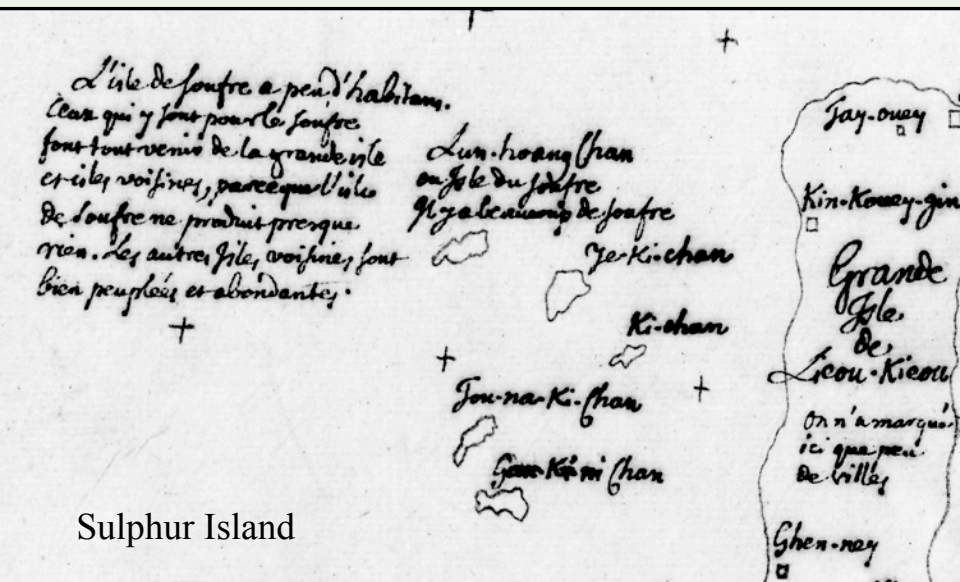 L'isle de soufre a peu d'habitans.
Ceux qui y sont pour le soufre
font tout venir de la grande isle
et isles voisines, parce que l'isle
de soufre ne produit presque
rien. Les autres Isles voisines sont
bien peuplées et abondantes.
Lun-hoang Chan
ou Isle du soufre
Il y a beaucoup de soufre
Ye-Ki-chan
Ki-chan
Tou-na-Ki-Chan
Chan
Tay-ouey
Kin-Kouey-gin
Grande
Isle
de
Lieou-Kieou
On n'a marqué
ici que peu
de villes
Ghen-ney
Sulphur Island